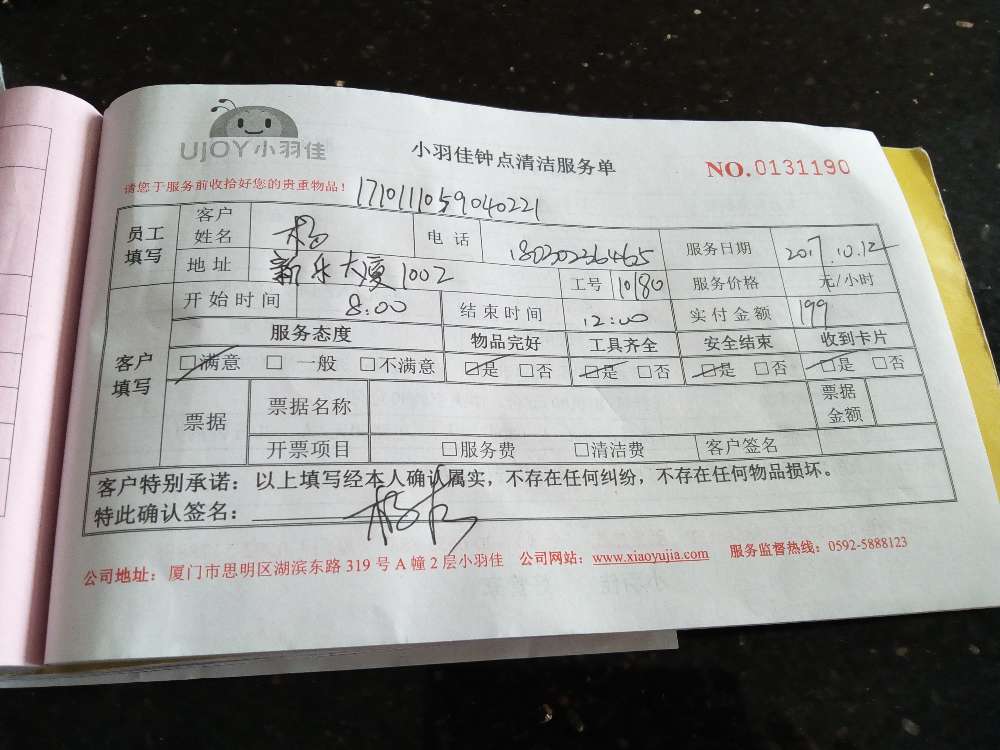 UJOY小羽佳
小羽佳钟点清洁服务单
NO.0131190
请您于服务前收拾好您的贵重物品！
1710111059040221
员工填写 客户姓名 杨 电话 18030226465 服务日期 2017.10.12
地址 新乐大厦1002 工号 1080 服务价格 元/小时
开始时间 8:00 结束时间 12:00 实付金额 199
客户填写 服务态度 物品完好 工具齐全 安全结束 收到卡片
☑满意 □一般 □不满意 ☑是 □否 ☑是 □否 ☑是 □否 ☑是 □否
票据 票据名称 票据金额
开票项目 □服务费 □清洁费 客户签名
客户特别承诺：以上填写经本人确认属实，不存在任何纠纷，不存在任何物品损坏。
特此确认签名：
公司地址：厦门市思明区湖滨东路319号A幢2层小羽佳 公司网站：www.xiaoyujia.com 服务监督热线：0592-5888123